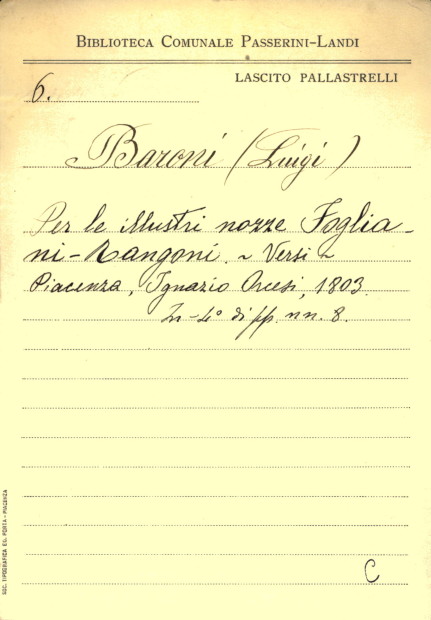 BIBLIOTECA COMUNALE PASSERINI-LANDI
LASCITO PALLASTRELLI
6.
Baroni (Luigi)
Per le illustri nozze Foglia-
ni-Rangoni. ~ Versi ~
Piacenza, Ignazio Orcesi, 1803.
In-4° di pp. nn. 8.
C
SOC. TIPOGRAFICA ED. PORTA - PIACENZA